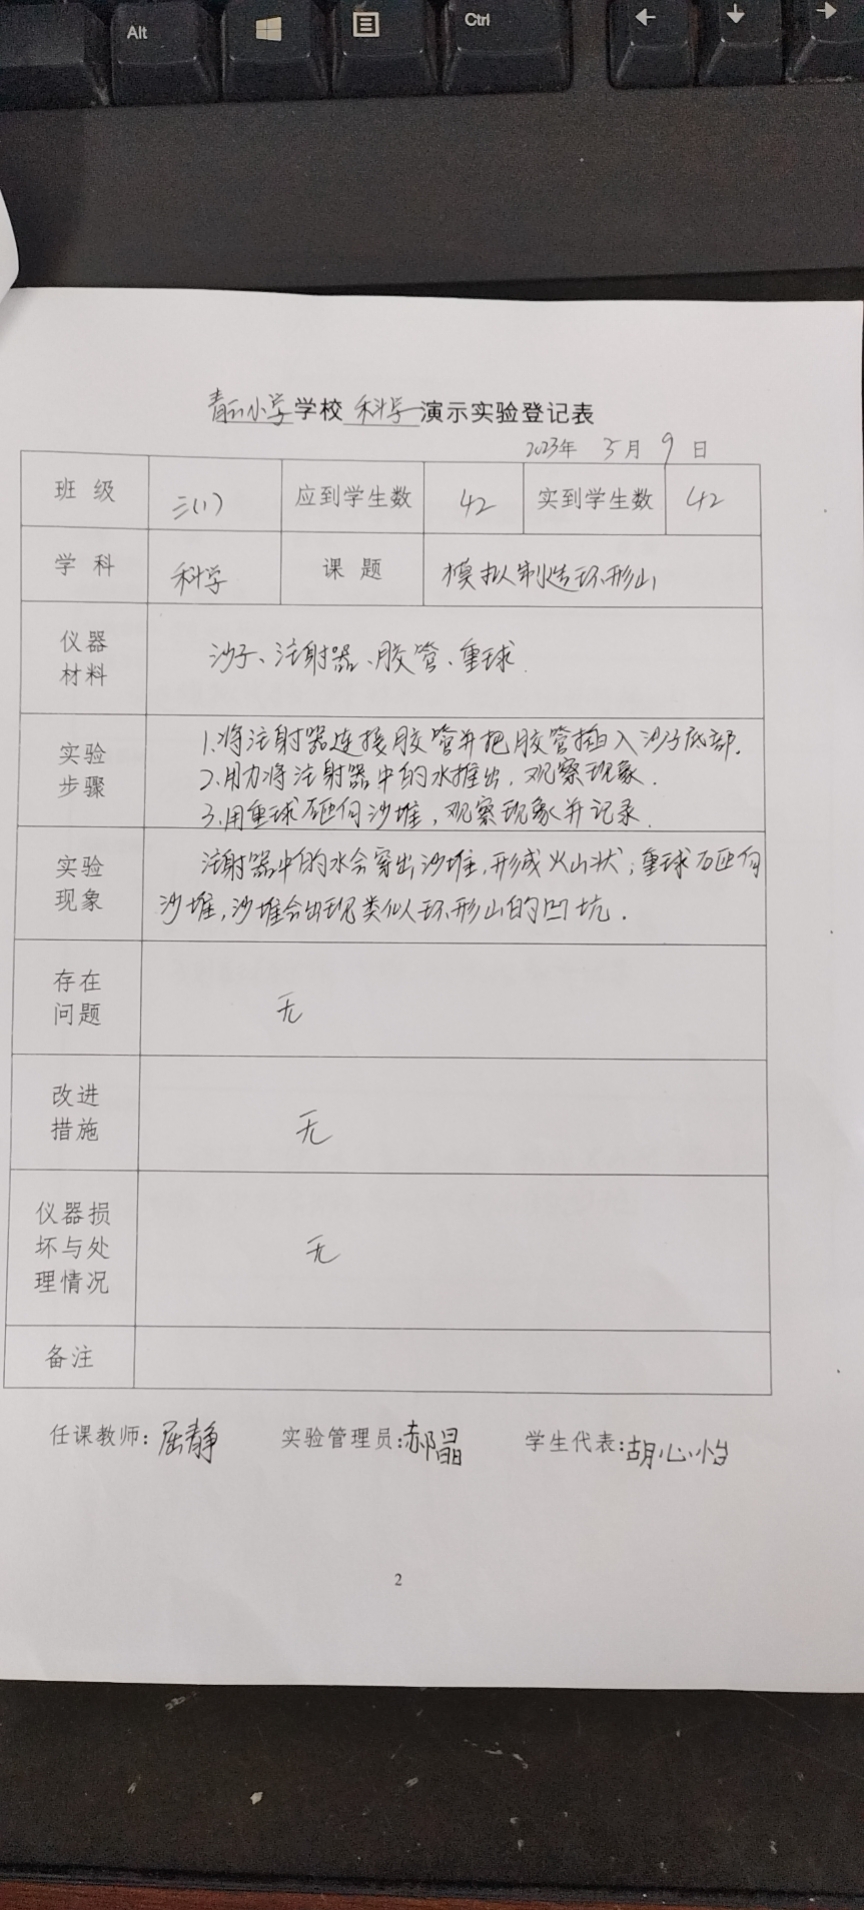 Alt
Ctrl
青云小学学校 科学 演示实验登记表
2023年 5月 9日
班级 三(1) 应到学生数 42 实到学生数 42
学科 科学 课题 模拟制造环形山
仪器材料 沙子、注射器、胶管、重球.
实验步骤 1.将注射器连接胶管并把胶管插入沙子底部.
2.用力将注射器中的水推出,观察现象.
3.用重球砸向沙堆,观察现象并记录.
实验现象 注射器中的水会窜出沙堆,形成火山状;重球砸向
沙堆,沙堆会出现类似环形山的凹坑.
存在问题 无
改进措施 无
仪器损坏与处理情况 无
备注
任课教师:屈静 实验管理员:郝晶 学生代表:胡心怡
2